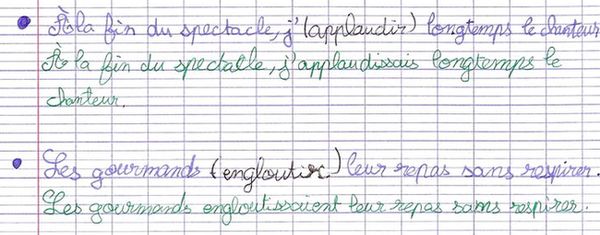 À la fin du spectacle, j'(applaudir) longtemps le chanteur
À la fin du spectacle, j'applaudissais longtemps le
chanteur.
Les gourmands (engloutir) leur repas sans respirer.
Les gourmands engloutissaient leur repas sans respirer.